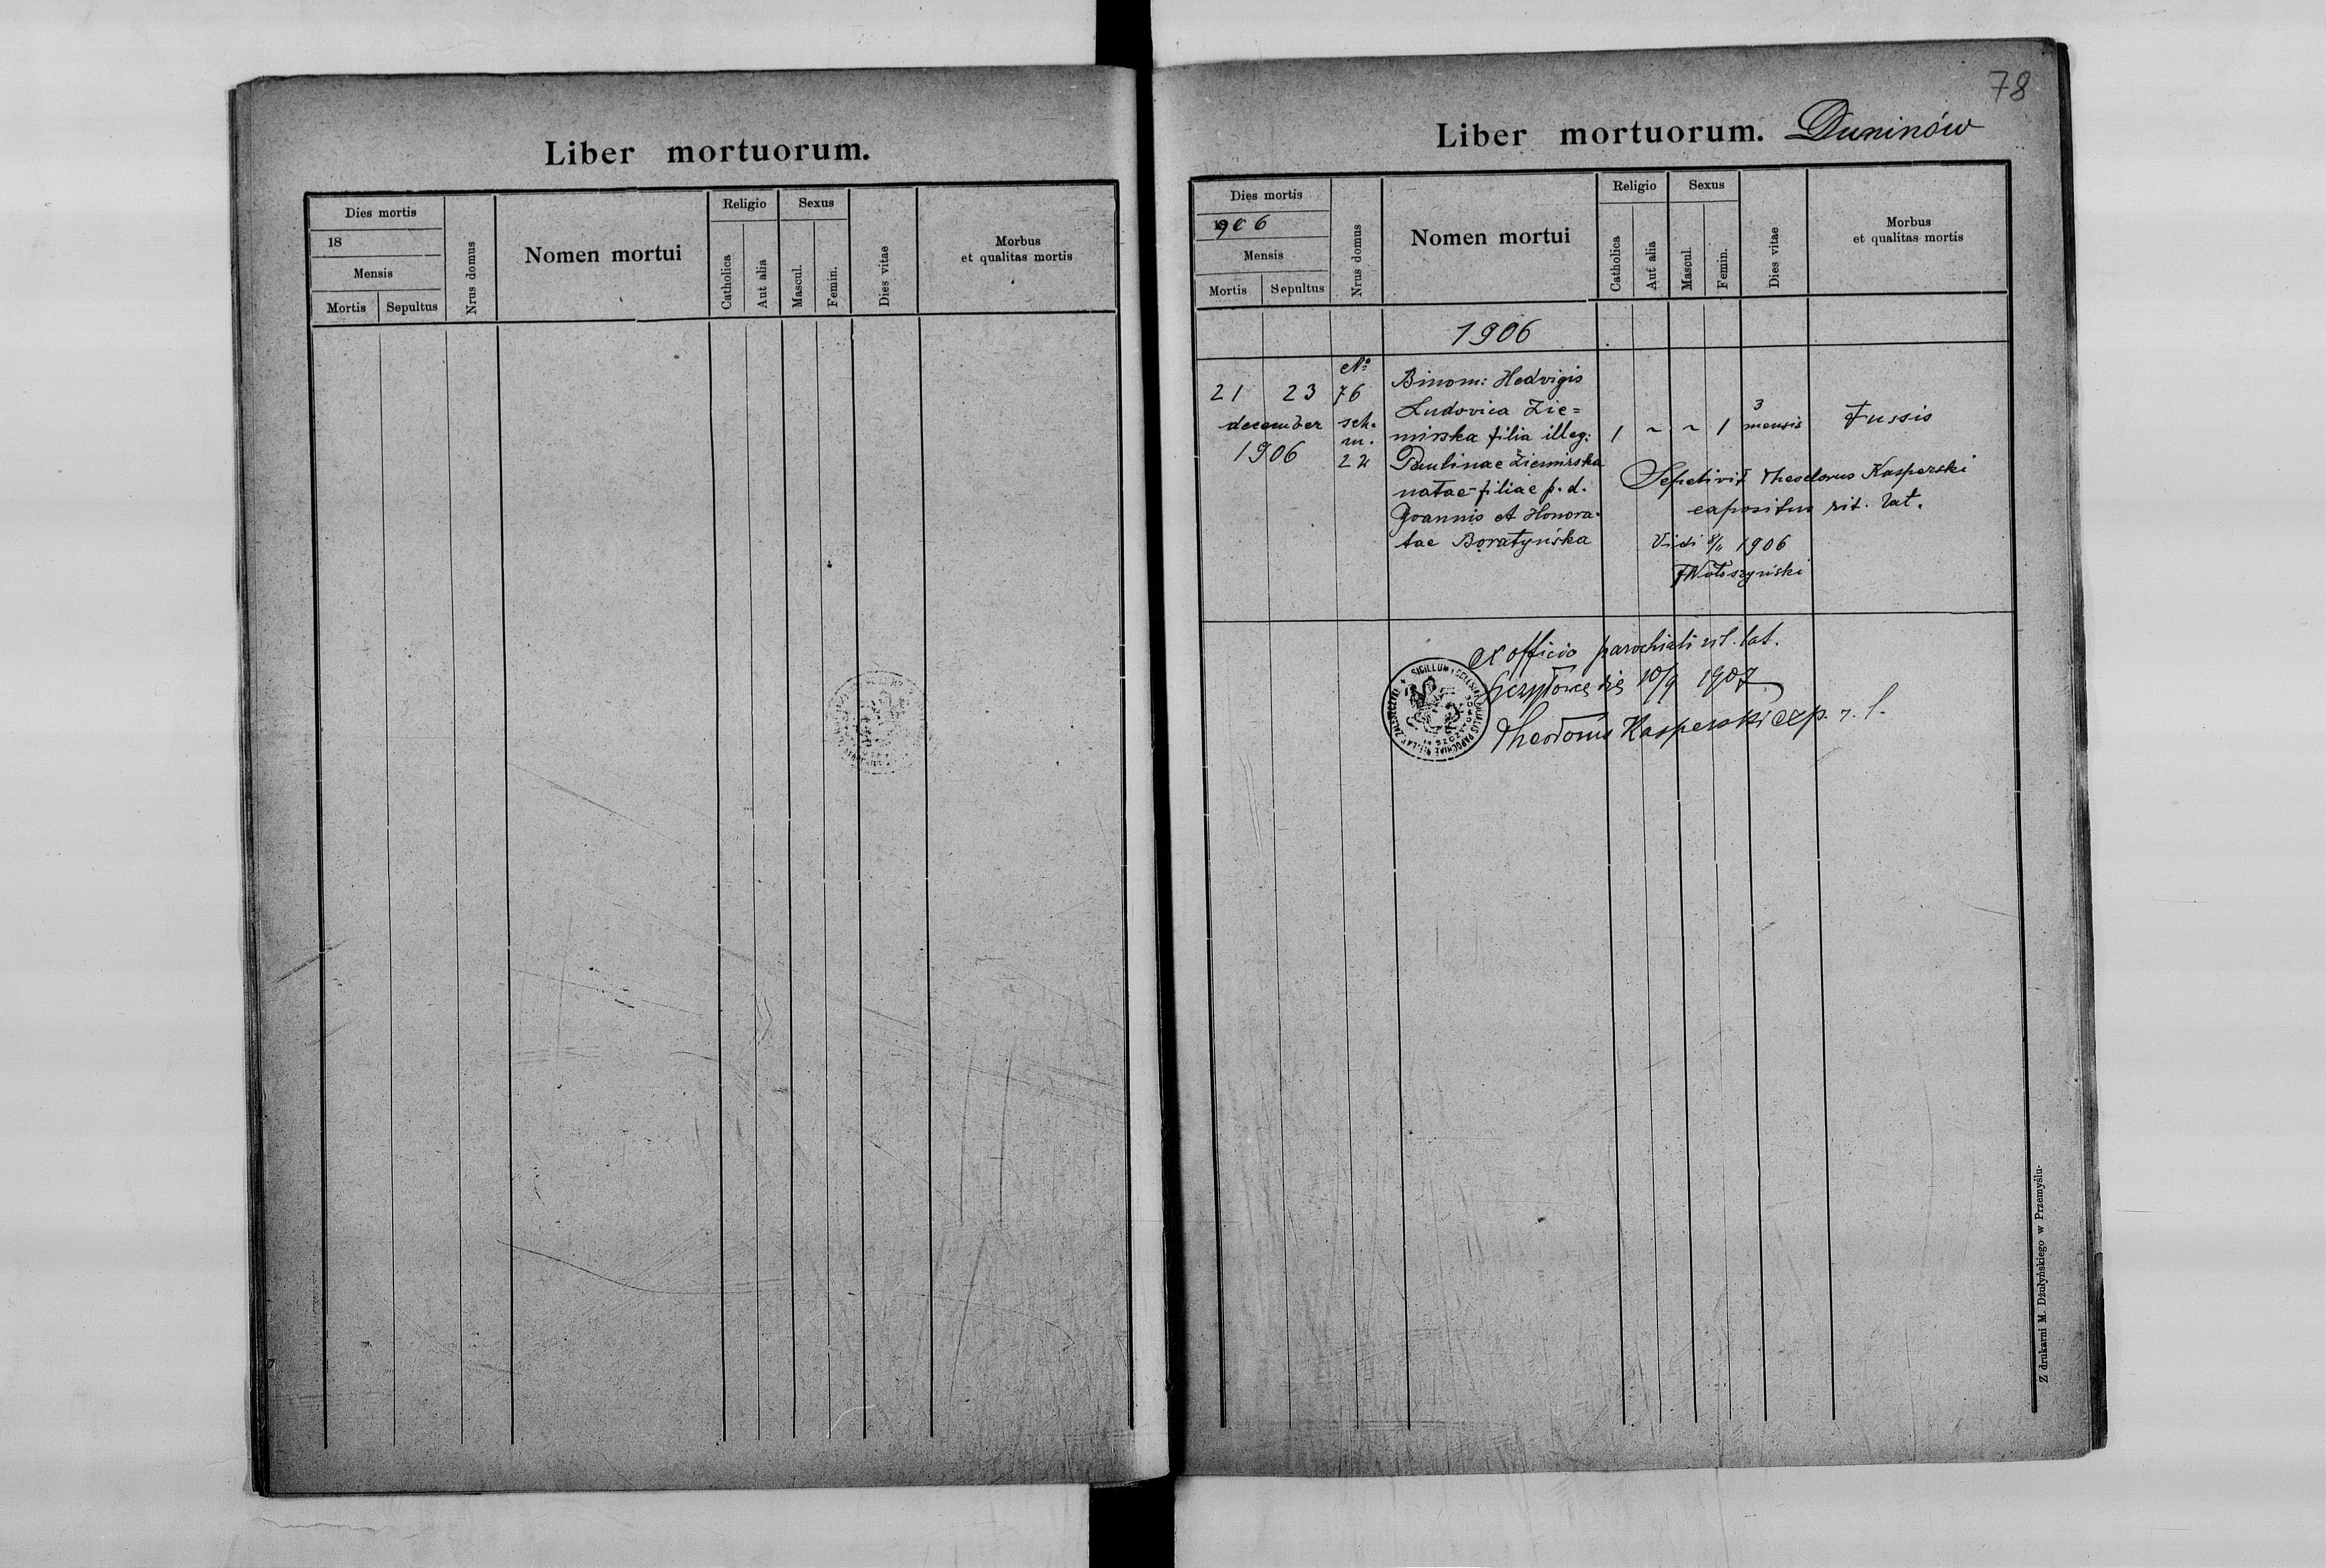 Liber mortuorum.
Dies mortis
18
Mensis
Mortis
Sepultus
Nrus domus
Nomen mortui
Religio
Catholica
Aut alia
Sexus
Mascul.
Femin.
Dies vitae
Morbus
et qualitas mortis
78
Liber mortuorum. Duninów
Dies mortis
906
Mensis
Mortis
Sepultus
Nrus domus
Nomen mortui
Religio
Catholica
Aut alia
Sexus
Mascul.
Femin.
Dies vitae
Morbus
et qualitas mortis
1906
21 23
december
1906
No
76
sch.
m.
22
Binom: Hedvigis
Ludovica Zie=
mirska filia illeg:
Paulinae Ziemirska
natae filiae p. d.
Joannis et Honora-
tae Boratyńska
1 ~ ~ 1
3
mensis
Tussis
Sepelivit Theodorus Kasperski
expositus rit. lat.
Vidi 1906
Wołoszyński
Ex officio parochiali rit. lat.
die 10/9 1907
Theodorus Kasperski exp. r. l.
SIGILLUM
Z drukarni M. Dżułyńskiego w Przemyślu.